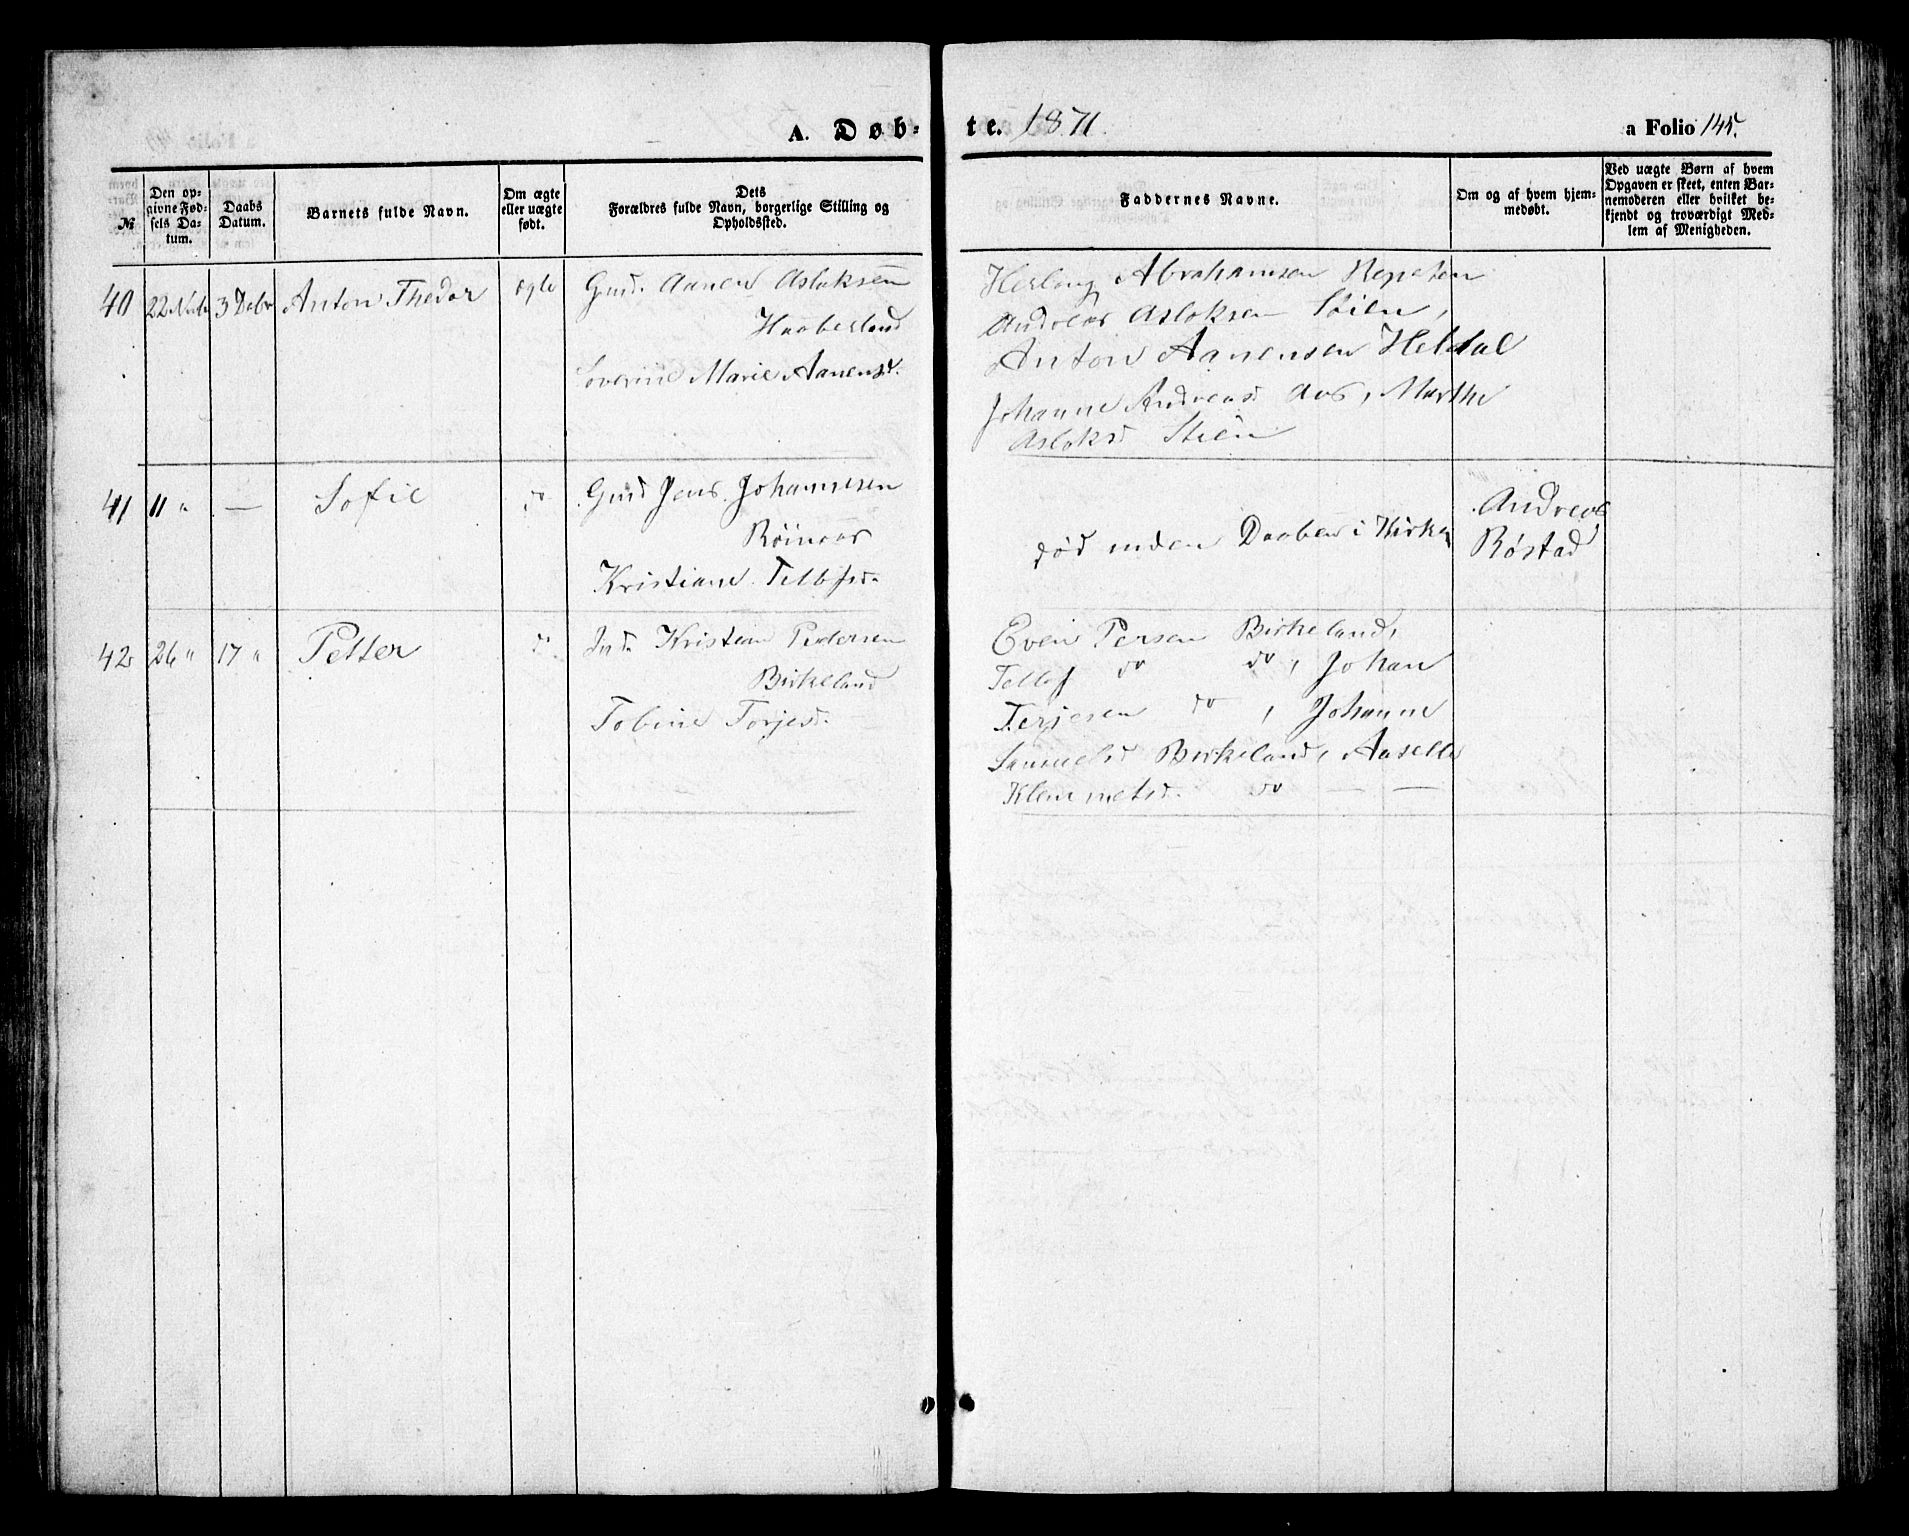 A. Døb-
te. 1871.
a Folio 145.
№
Den op-
givne Fød-
sels Da-
tum.
Daabs
Datum.
Barnets fulde Navn.
Om ægte
eller uægte
født.
Dets
Forældres fulde Navn, borgerlige Stilling og
Opholdssted.
Faddernes Navne.
Om og af hvem hjem-
medøbt.
Ved uægte Børn af hvem
Opgaven er skeet, enten Bar-
nemoderen eller hvilket be-
kjendt og troværdigt Med-
lem af Menigheden.
40 22 3 Dcbr Anton Thedor ægte Gmd. Aanen Asloksen
Haaberland
Severine Marie Aanensd.
Abrahamsen Repsten
Andreas Asloksen
Anton Aanensen Heldal
Johanne Andreasd Aas, Marthe
Asloksd Stien
41 11 " — Sofie do Gmd Jens Johannesen
Røinaas
Kristiane Tellefsd.
død inden Daaben i Kirken
Andreas
Røstad
42 26 " 17 " Petter do Ind. Kristian Pedersen
Birkeland
Tobine Torjesd.
Even Persen Birkeland,
Tellef do do, Johan
Terjesen do, Johanne
Samuelsd Birkeland, Aaselle
Klemmetsd. do — —